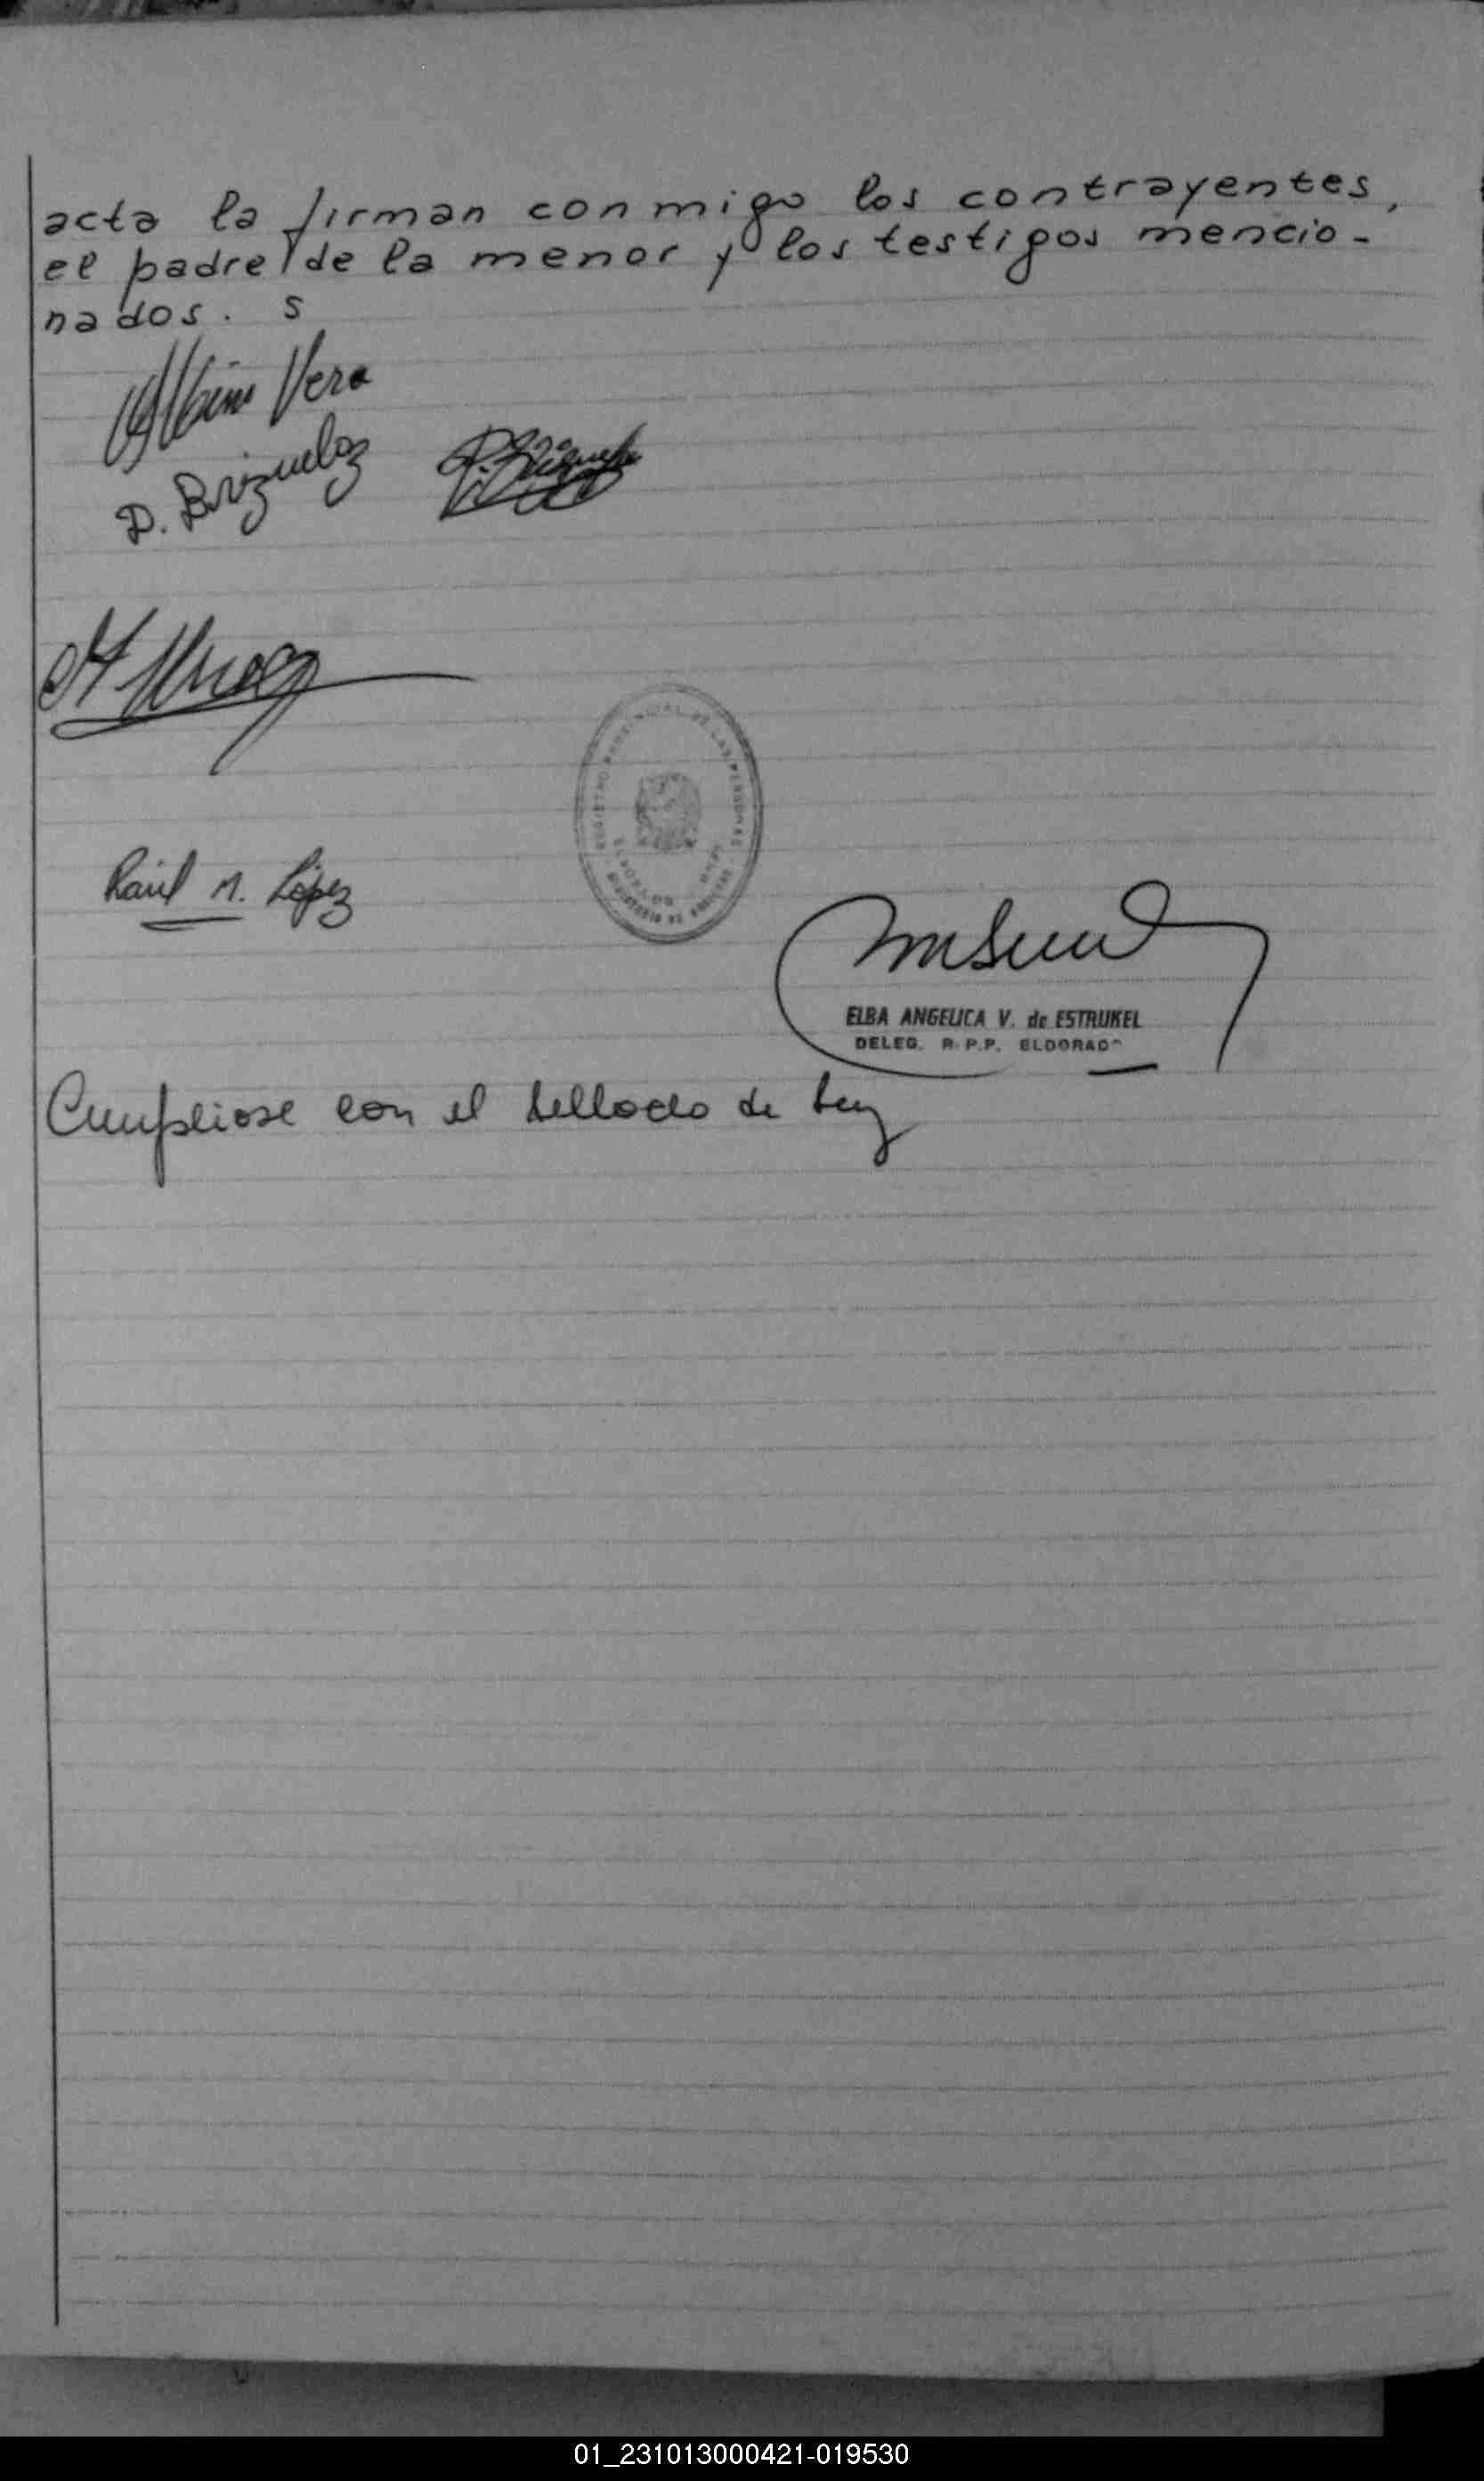 acta la firman conmigo los contrayentes,
el padre de la menor y los testigos mencio-
nados. S
Albino Vera
D. Brizuela
Raúl M. López
REGISTRO PROVINCIAL DE LAS PERSONAS
ELDORADO
MINISTERIO DE
ELBA ANGELICA V. de ESTRUKEL
DELEG. R.P.P. ELDORADO
Cumpliose con el sellado de Ley
01_231013000421-019530